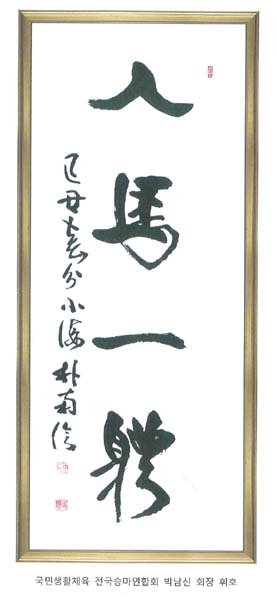 人馬一體
己丑春分 小海 朴南信
국민생활체육 전국승마연합회 박남신 회장 휘호